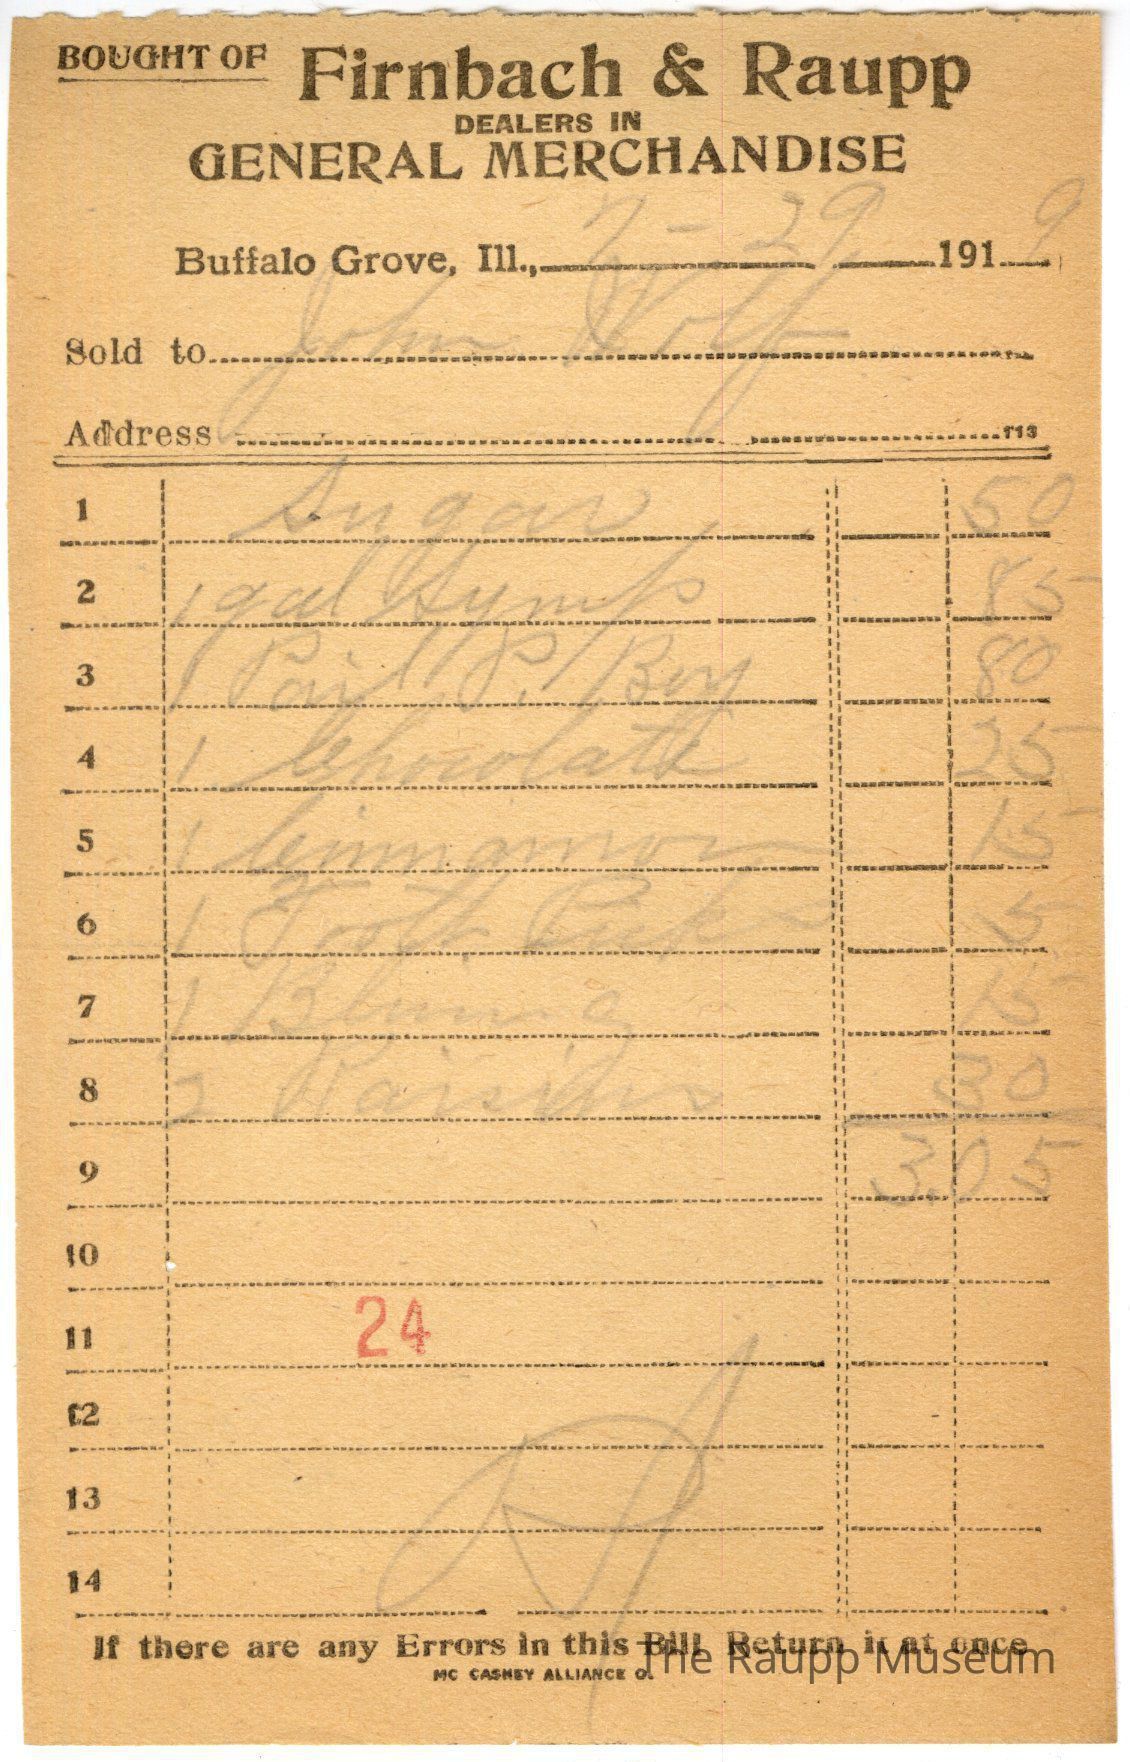 BOUGHT OF Firnbach & Raupp
DEALERS IN
GENERAL MERCHANDISE
Buffalo Grove, Ill., 7-29 1919
Sold to John Wolf
Address F13
1 Sugar 50
2 1 gal Syrup 85
3 1 Pail 80
4 1 Chocolate 25
5 1 Cinnamon 15
6 1 5
7 1 15
8 2 Raisins 30
9 3.05
10
11 24
12
13
14
If there are any Errors in this Bill Return it at once
MC CASKEY ALLIANCE O.
The Raupp Museum